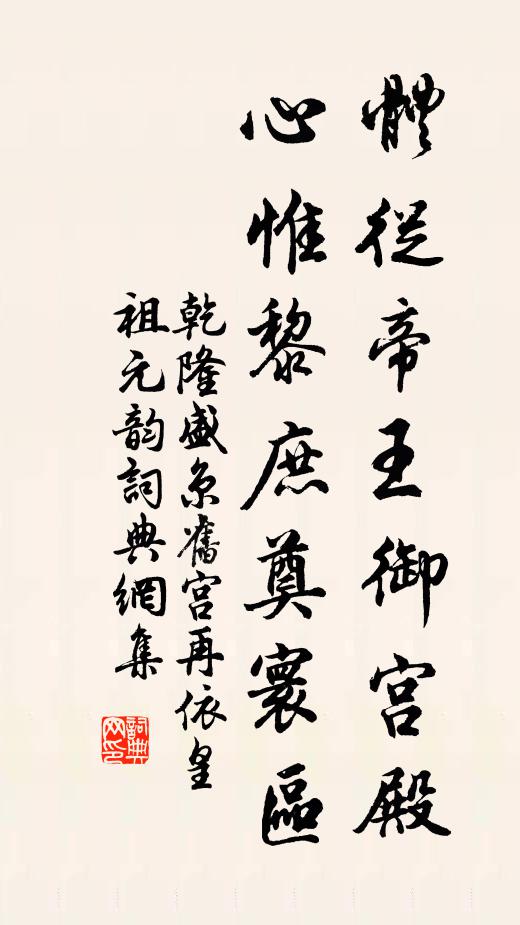 體從帝王御宮殿
心惟黎庶奠寰區
乾隆盛京舊宮再依皇
祖元韵詞典網集
詞典网印